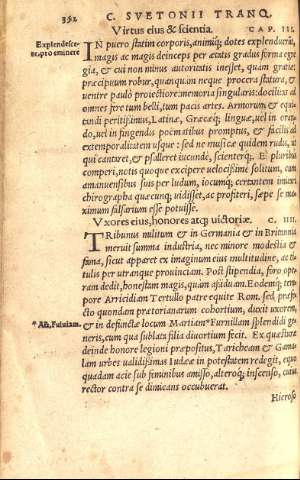 352
C. SVETONII TRANQ.
Virtus eius & scientia. CAP. III.
Explendesce-
re, pro eminere
IN puero statim corporis, animiq; dotes explenduerūt,
magis ac magis deinceps per ætatis gradus forma egre
gia, & cui non minus autoritatis inesset, quam gratiæ:
præcipuum robur, quanquam neque procera statura, &
uentre paulò proiectiore: memoria singularis: docilitas ad
omnes fere tum belli, tum pacis artes. Armorum & equi-
tandi peritissimus, Latinæ, Græcæq; linguæ, uel in oran-
do, uel in fingendis poëmatibus promptus, & facilis ad
extemporalitatem usque: sed ne musicæ quidem rudis, ut
qui cantaret, & psalleret iucundè, scienterq;. E pluribus
comperi, notis quoque excipere uelocissime solitum, cum
amanuensibus suis per ludum, iocumq; certantem imitari
chirographa quæcunq; uidisset, ac profiteri, sæpe se ma-
ximum falsarium esse potuisse.
Vxores eius, honores atq; uictoriæ. C. IIII.
TRibunus militum & in Germania & in Britannia
meruit summa industria, nec minore modestia &
fama, sicut apparet ex imaginum eius multitudine, ac ti-
tulis per utranque prouinciam. Post stipendia, foro ope-
ram dedit, honestam magis, quàm assiduam. Eodemq; tem-
pore Arricidiam Tertullo patre equite Rom. sed præfe-
cto quondam prætorianarum cohortium, duxit uxorem,
*Al. Fuluiam.
& in defunctæ locum Martiam *Furnillam splendidi ge-
neris, cum qua sublata filia diuortium fecit. Ex quæstura
deinde honore legioni præpositus, Tarichæam & Gama-
lam urbes ualidissimas Iudææ in potestatem redegit, equo
quadam acie sub fœminibus amisso, alteroq; inscenso, cuius
rector contra se dimicans occubuerat.
Hieroso